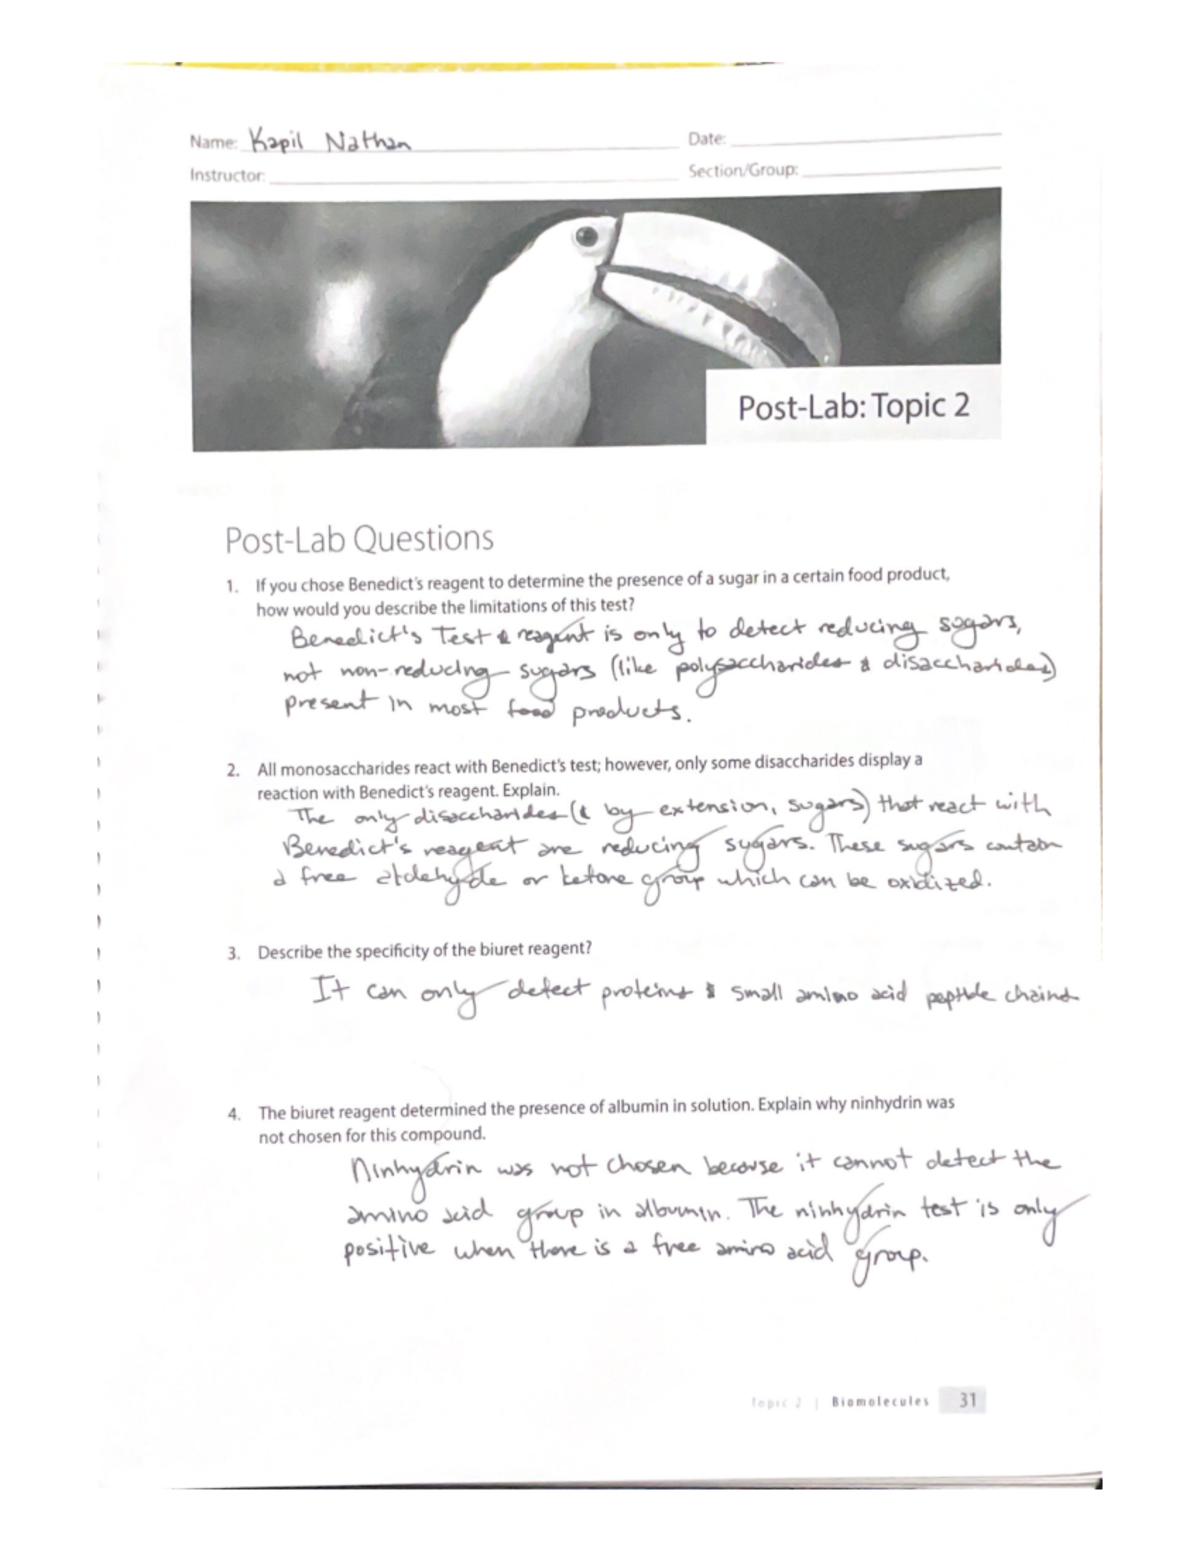 Name: Kapil Nathan
Date:
Instructor:
Section/Group:
Post-Lab: Topic 2
Post-Lab Questions
1. If you chose Benedict's reagent to determine the presence of a sugar in a certain food product,
how would you describe the limitations of this test?
Benedict's Test & reagent is only to detect reducing sugars,
not non-reducing sugars (like polysaccharides & disaccharides)
present in most food products.
2. All monosaccharides react with Benedict's test; however, only some disaccharides display a
reaction with Benedict's reagent. Explain.
The only disaccharides (& by extension, sugars) that react with
Benedict's reagent are reducing sugars. These sugars contain
a free aldehyde or ketone group which can be oxidized.
3. Describe the specificity of the biuret reagent?
It can only detect proteins & small amino acid peptide chains
4. The biuret reagent determined the presence of albumin in solution. Explain why ninhydrin was
not chosen for this compound.
Ninhydrin was not chosen because it cannot detect the
amino acid group in albumin. The ninhydrin test is only
positive when there is a free amino acid group.
Topic 2 | Biomolecules 31